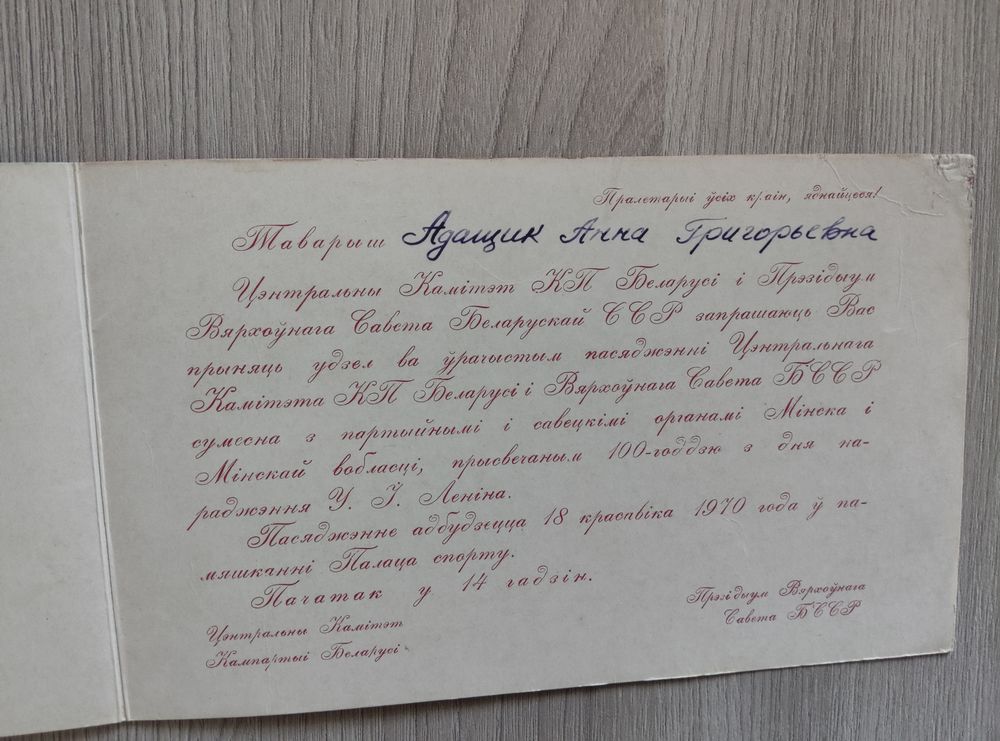 Пралетарыі ўсіх краін, яднайцеся!
Таварыш Адащик Анна Григорьевна
Цэнтральны Камітэт КП Беларусі і Прэзідыум
Вярхоўнага Савета Беларускай ССР запрашаюць Вас
прыняць удзел ва ўрачыстым пасяджэнні Цэнтральнага
Камітэта КП Беларусі і Вярхоўнага Савета БССР
сумесна з партыйнымі і савецкімі органамі Мінска і
Мінскай вобласці, прысвечаным 100-годдзю з дня на-
раджэння У. І. Леніна.
Пасяджэнне адбудзецца 18 красавіка 1970 года ў па-
мяшканні Палаца спорту.
Пачатак у 14 гадзін.
Цэнтральны Камітэт
Кампартыі Беларусі
Прэзідыум Вярхоўнага
Савета БССР